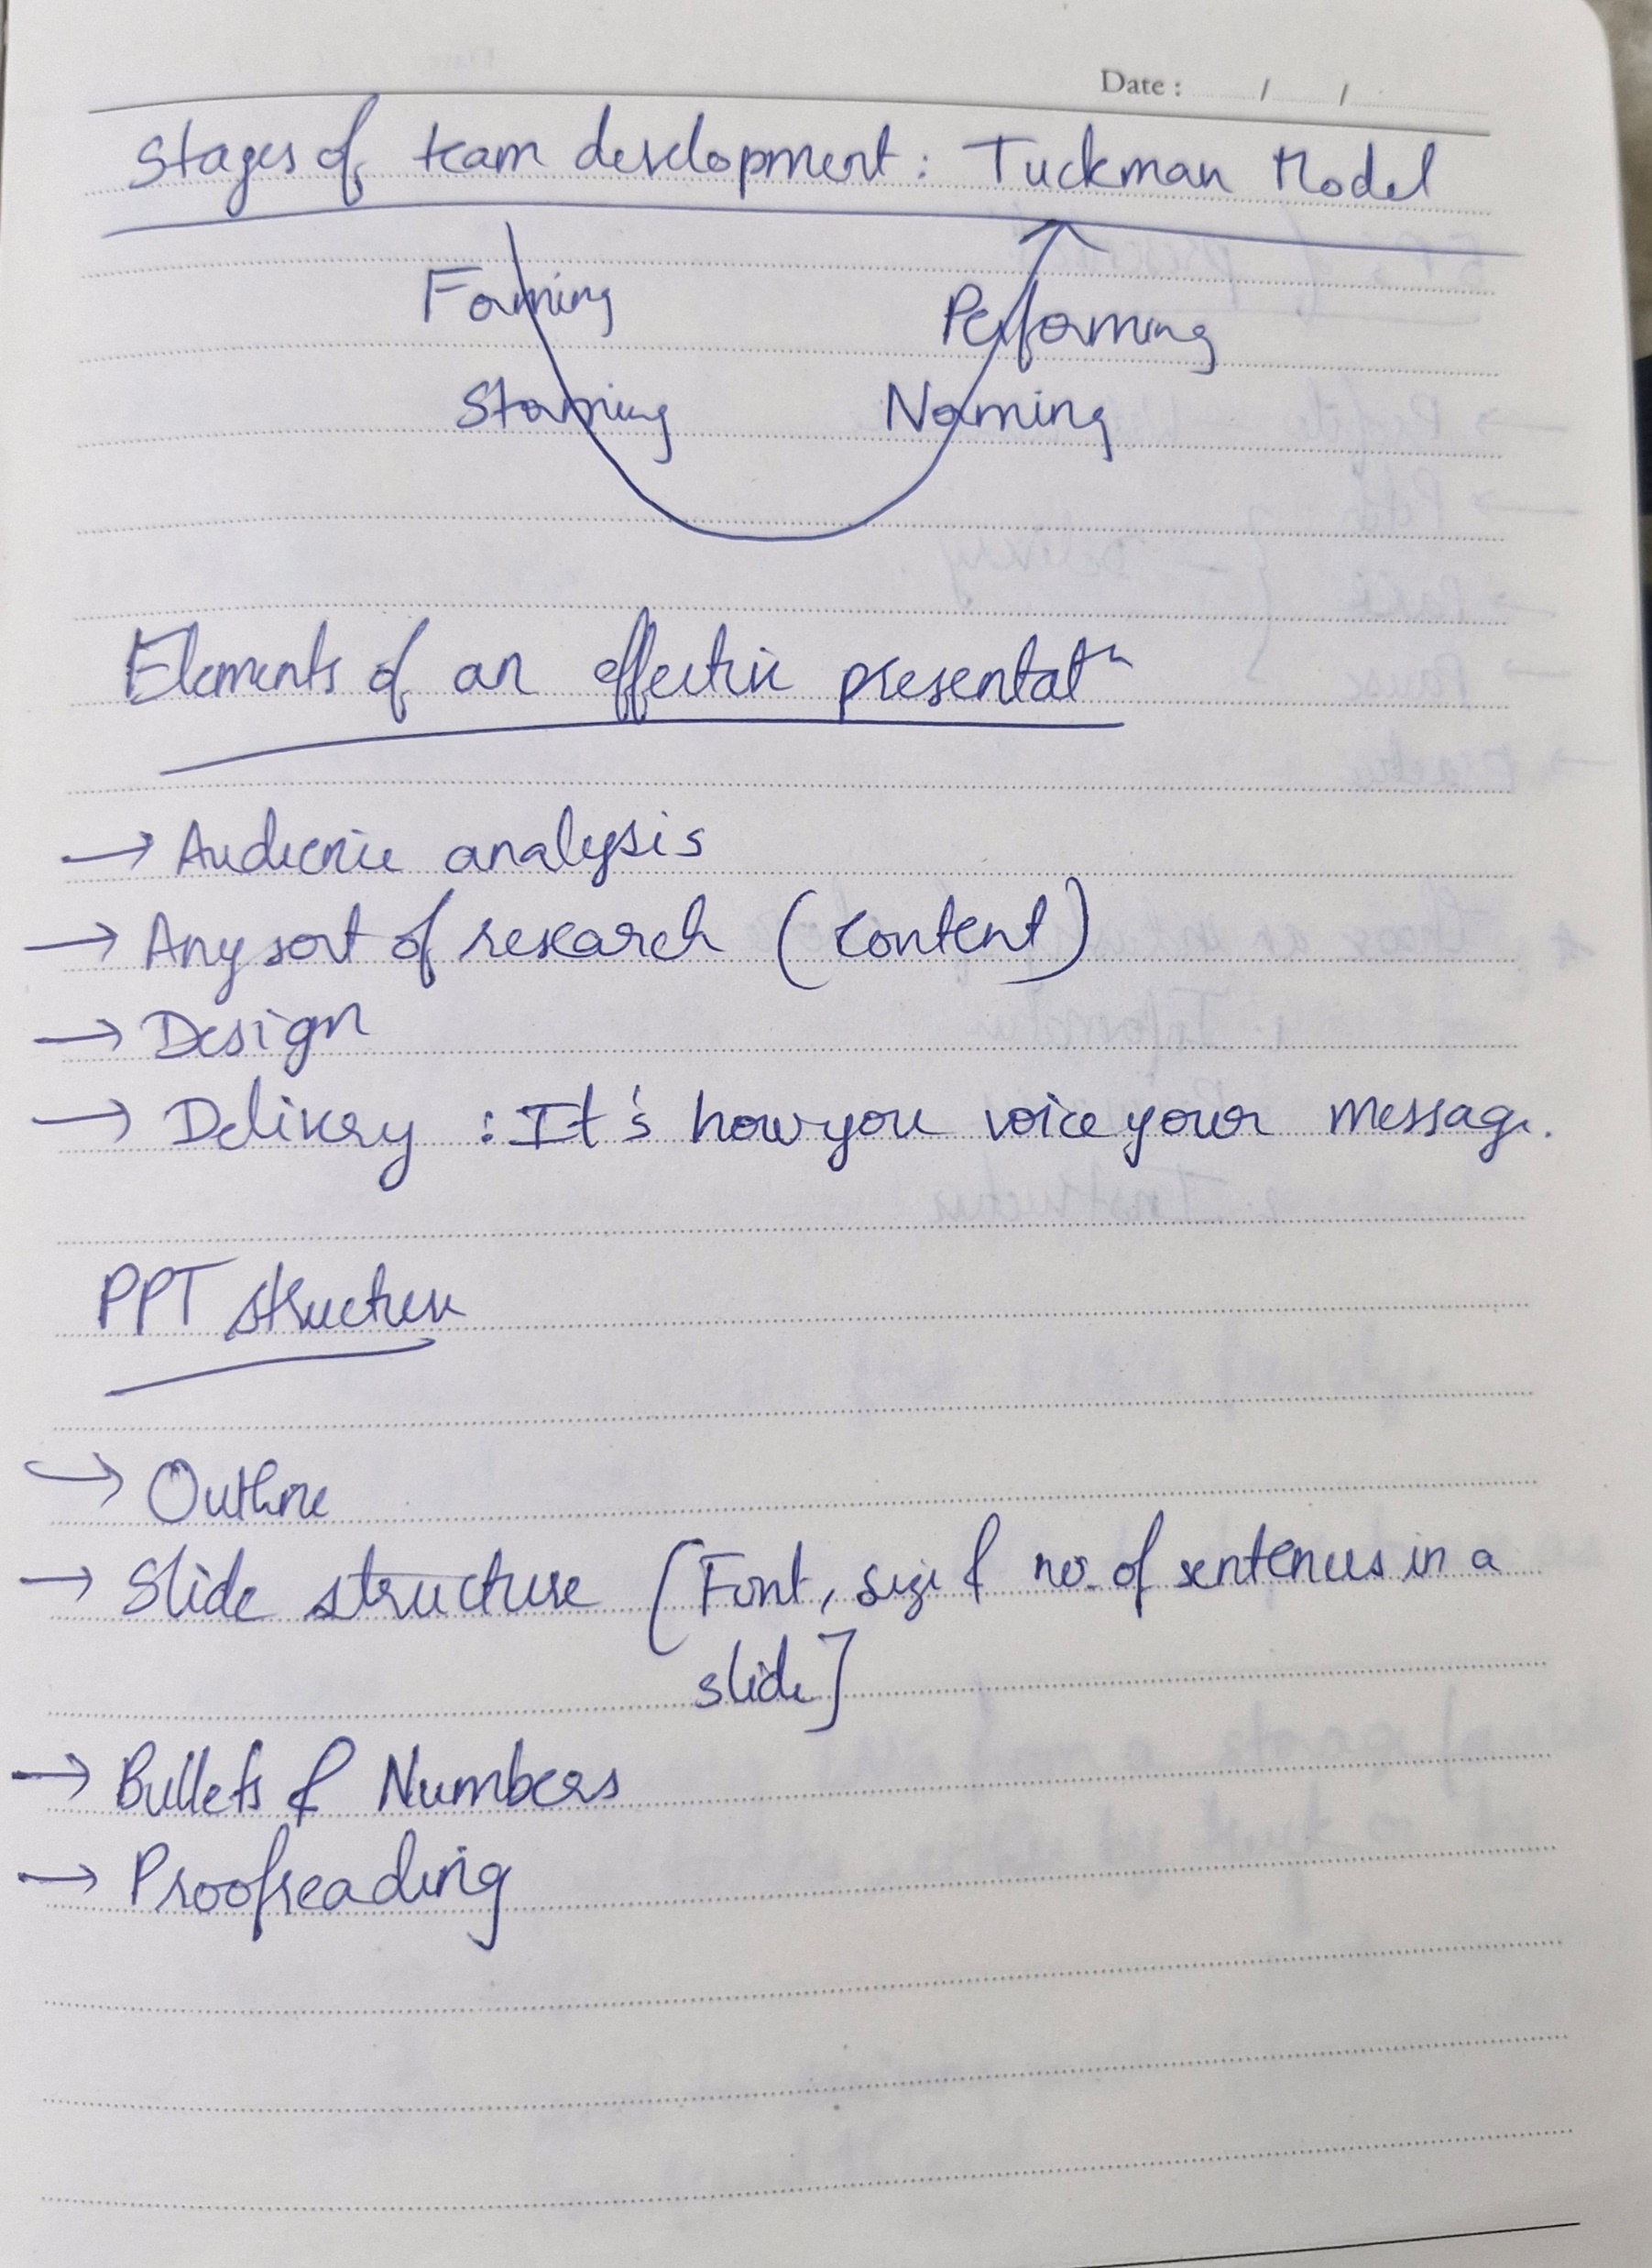 Date : / /
Stages of team development : Tuckman Model
Forming Performing
Storming Norming
Elements of an effective presentatn
→ Audience analysis
→ Any sort of research (content)
→ Design
→ Delivery : It's how you voice your message.
PPT structure
→ Outline
→ Slide structure [Font, size & no. of sentences in a
slide]
→ Bullets & Numbers
→ Proofreading